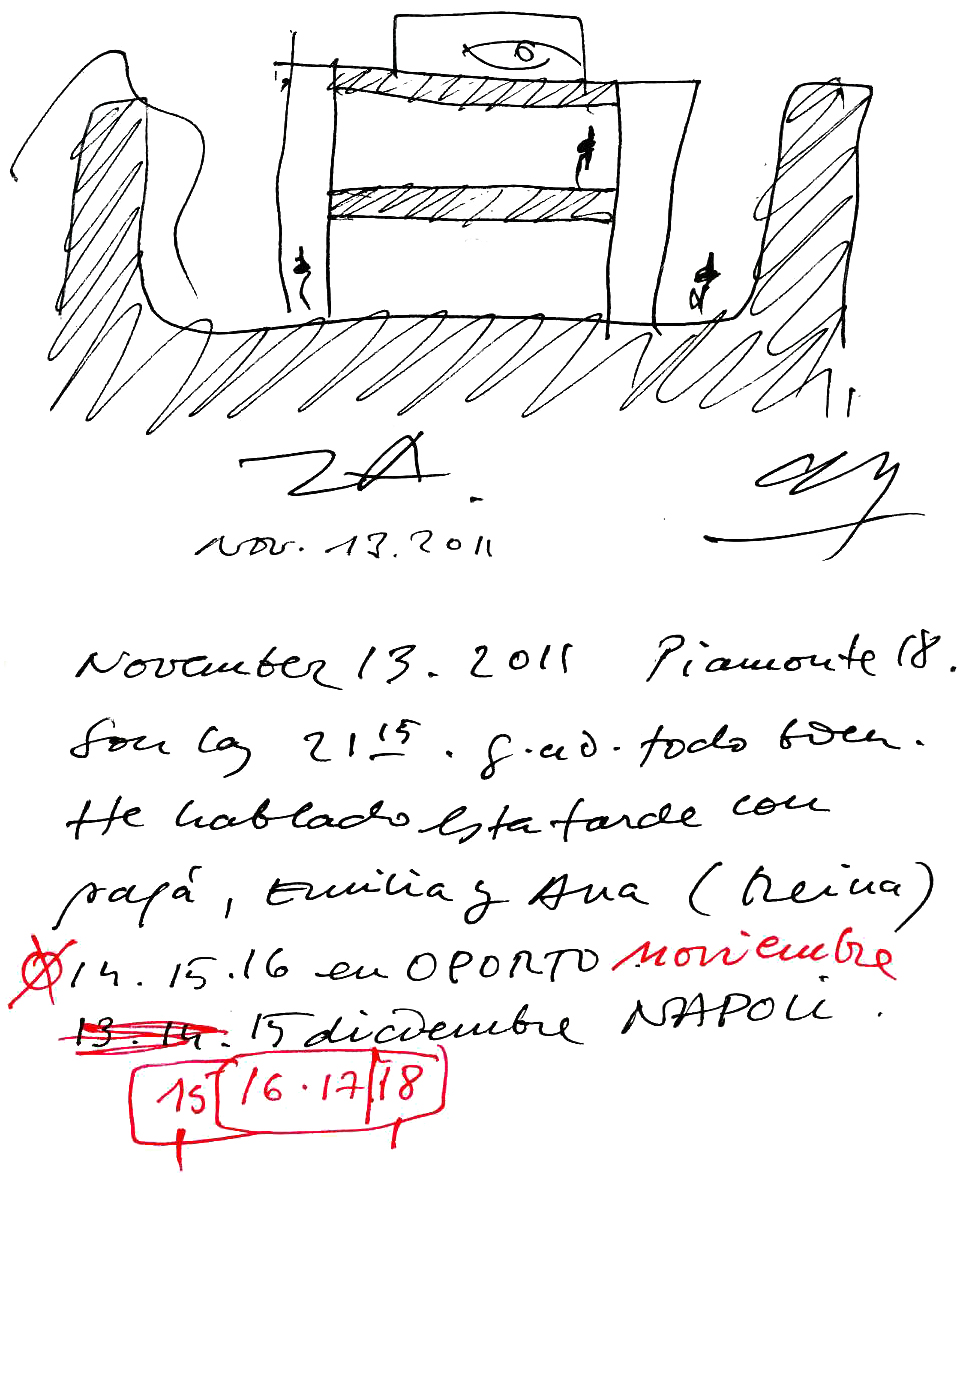 ZA.
Nov. 13. 2011
November 13. 2011 Piamonte 18.
Son las 21 15. todo bien.
He hablado esta tarde con
papá, Emilia y Ana (Reina)
14. 15. 16 en OPORTO noviembre
13. 14. 15 diciembre NAPOLI.
15 16 · 17 18